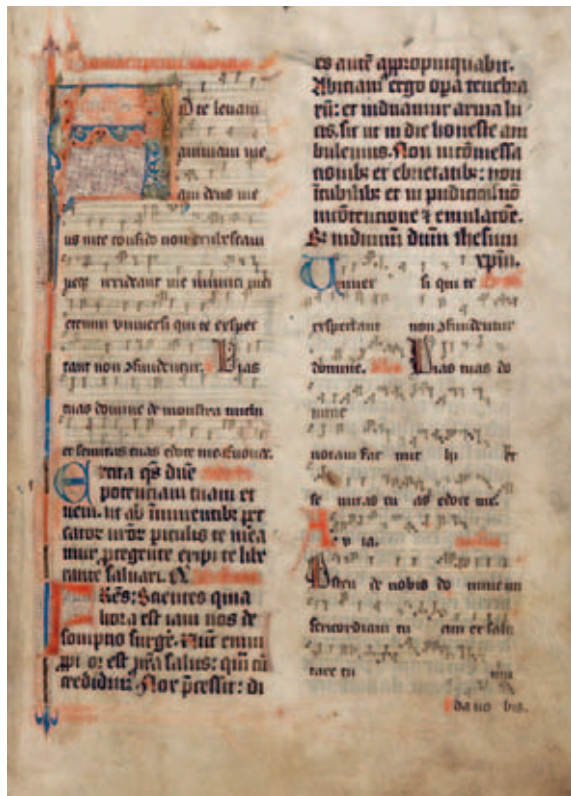 D te levavi
animam me
am deus me
us in te confido non erubescam
neqȝ irrideant me inimici mei
etenim universi qui te exspec
tant non ɔfundentur. Vias
tuas domine demonstra michi
et semitas tuas edoce me. Euouae.
Excita qs dñe
potenciam tuam et
veni. ut ab imminentibȝ pec
catorum nrōr piculis te mea
mur ptegente eripi te libe
rante salvari.
Frēs: Scientes quia
hora est iam nos de
sompno surgē. Nūc enim
ppior est nrā salus: qm cū
credidim. Nox pcessit: di
es autē appropinquabit.
Abiciam ergo opa tenebra
rū: et induamur arma lu
cis. sic ut in die honeste am
bulemus. Non in cōmessa
cionibȝ et ebrietatibȝ: non
ī cubilibȝ et inpudiciciis nō
in cōtencione et emulacōe.
Sȝ induimī dūm ihesum
xpm.
Univer si qui te
exspectant non ɔfundentur
domine. Vias tuas do
mine
notam fac mi chi et
se mitas tu as edoce me.
Ae v ia.
Osten de nobis do mine mi
sericordiam tu am et salu
tare tu um
da no bis.